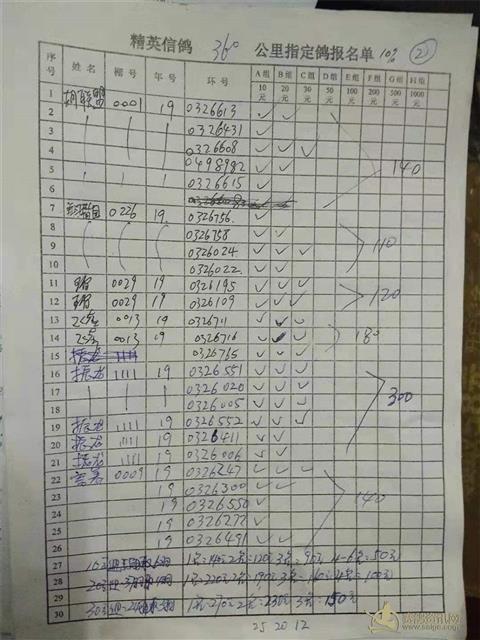 精英信鸽 360 公里指定鸽报名单 10% ②
序号 姓名 棚号 年号 环号 A组10元 B组20元 C组30元 D组50元 E组100元 F组200元 G组500元 H组1000元
1 胡联盟 0001 19 0326613 ✓ ✓
2
3 0326431 ✓ ✓
4 0326608 ✓ ✓ ✓
5 0498982 ✓ ✓
6 0326615 ✓ 140
7 0226 19 0326756 ✓
8 0326758 ✓ ✓
9 0326024 ✓ ✓ ✓ 110
10 0326022 ✓ ✓
11 0029 19 0326195 ✓ ✓ ✓
12 0029 19 0326109 ✓ ✓ ✓ 120
13 0013 19 0326711 ✓ ✓ ✓
14 0013 19 0326716 ✓ ✓ ✓ 180
15 振龙 1111 0326765 ✓ ✓ ✓
16 振龙 1111 19 0326551 ✓ ✓ ✓
17 0326020 ✓ ✓ ✓
18 0326005 ✓ ✓ ✓ 300
19 振龙 1111 19 0326552 ✓ ✓ ✓
20 振龙 1111 19 0326411 ✓ ✓
21 振龙 1111 19 0326006 ✓ ✓
22 0009 19 0326247 ✓ ✓ ✓
23 19 0326300 ✓ ✓
24 19 0326550 ✓ 140
25 19 0326272 ✓
26 19 0326491 ✓ ✓
27 1名=140元 2名=120元 3名=90元 4-6名=50元
28 1名=220元 2名=190元 3名=160元 4名=100元
29
30 1名=270元 2名=230元 3名=150元
25 20 12